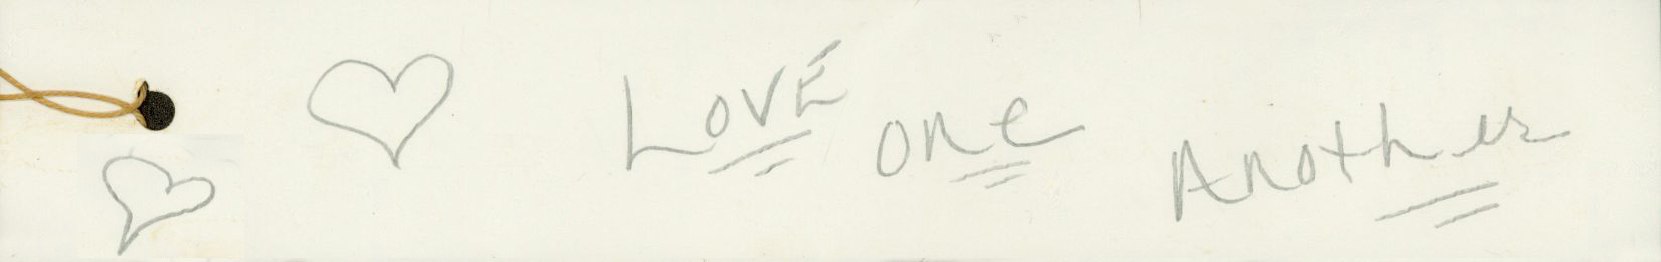 LOVE one Another